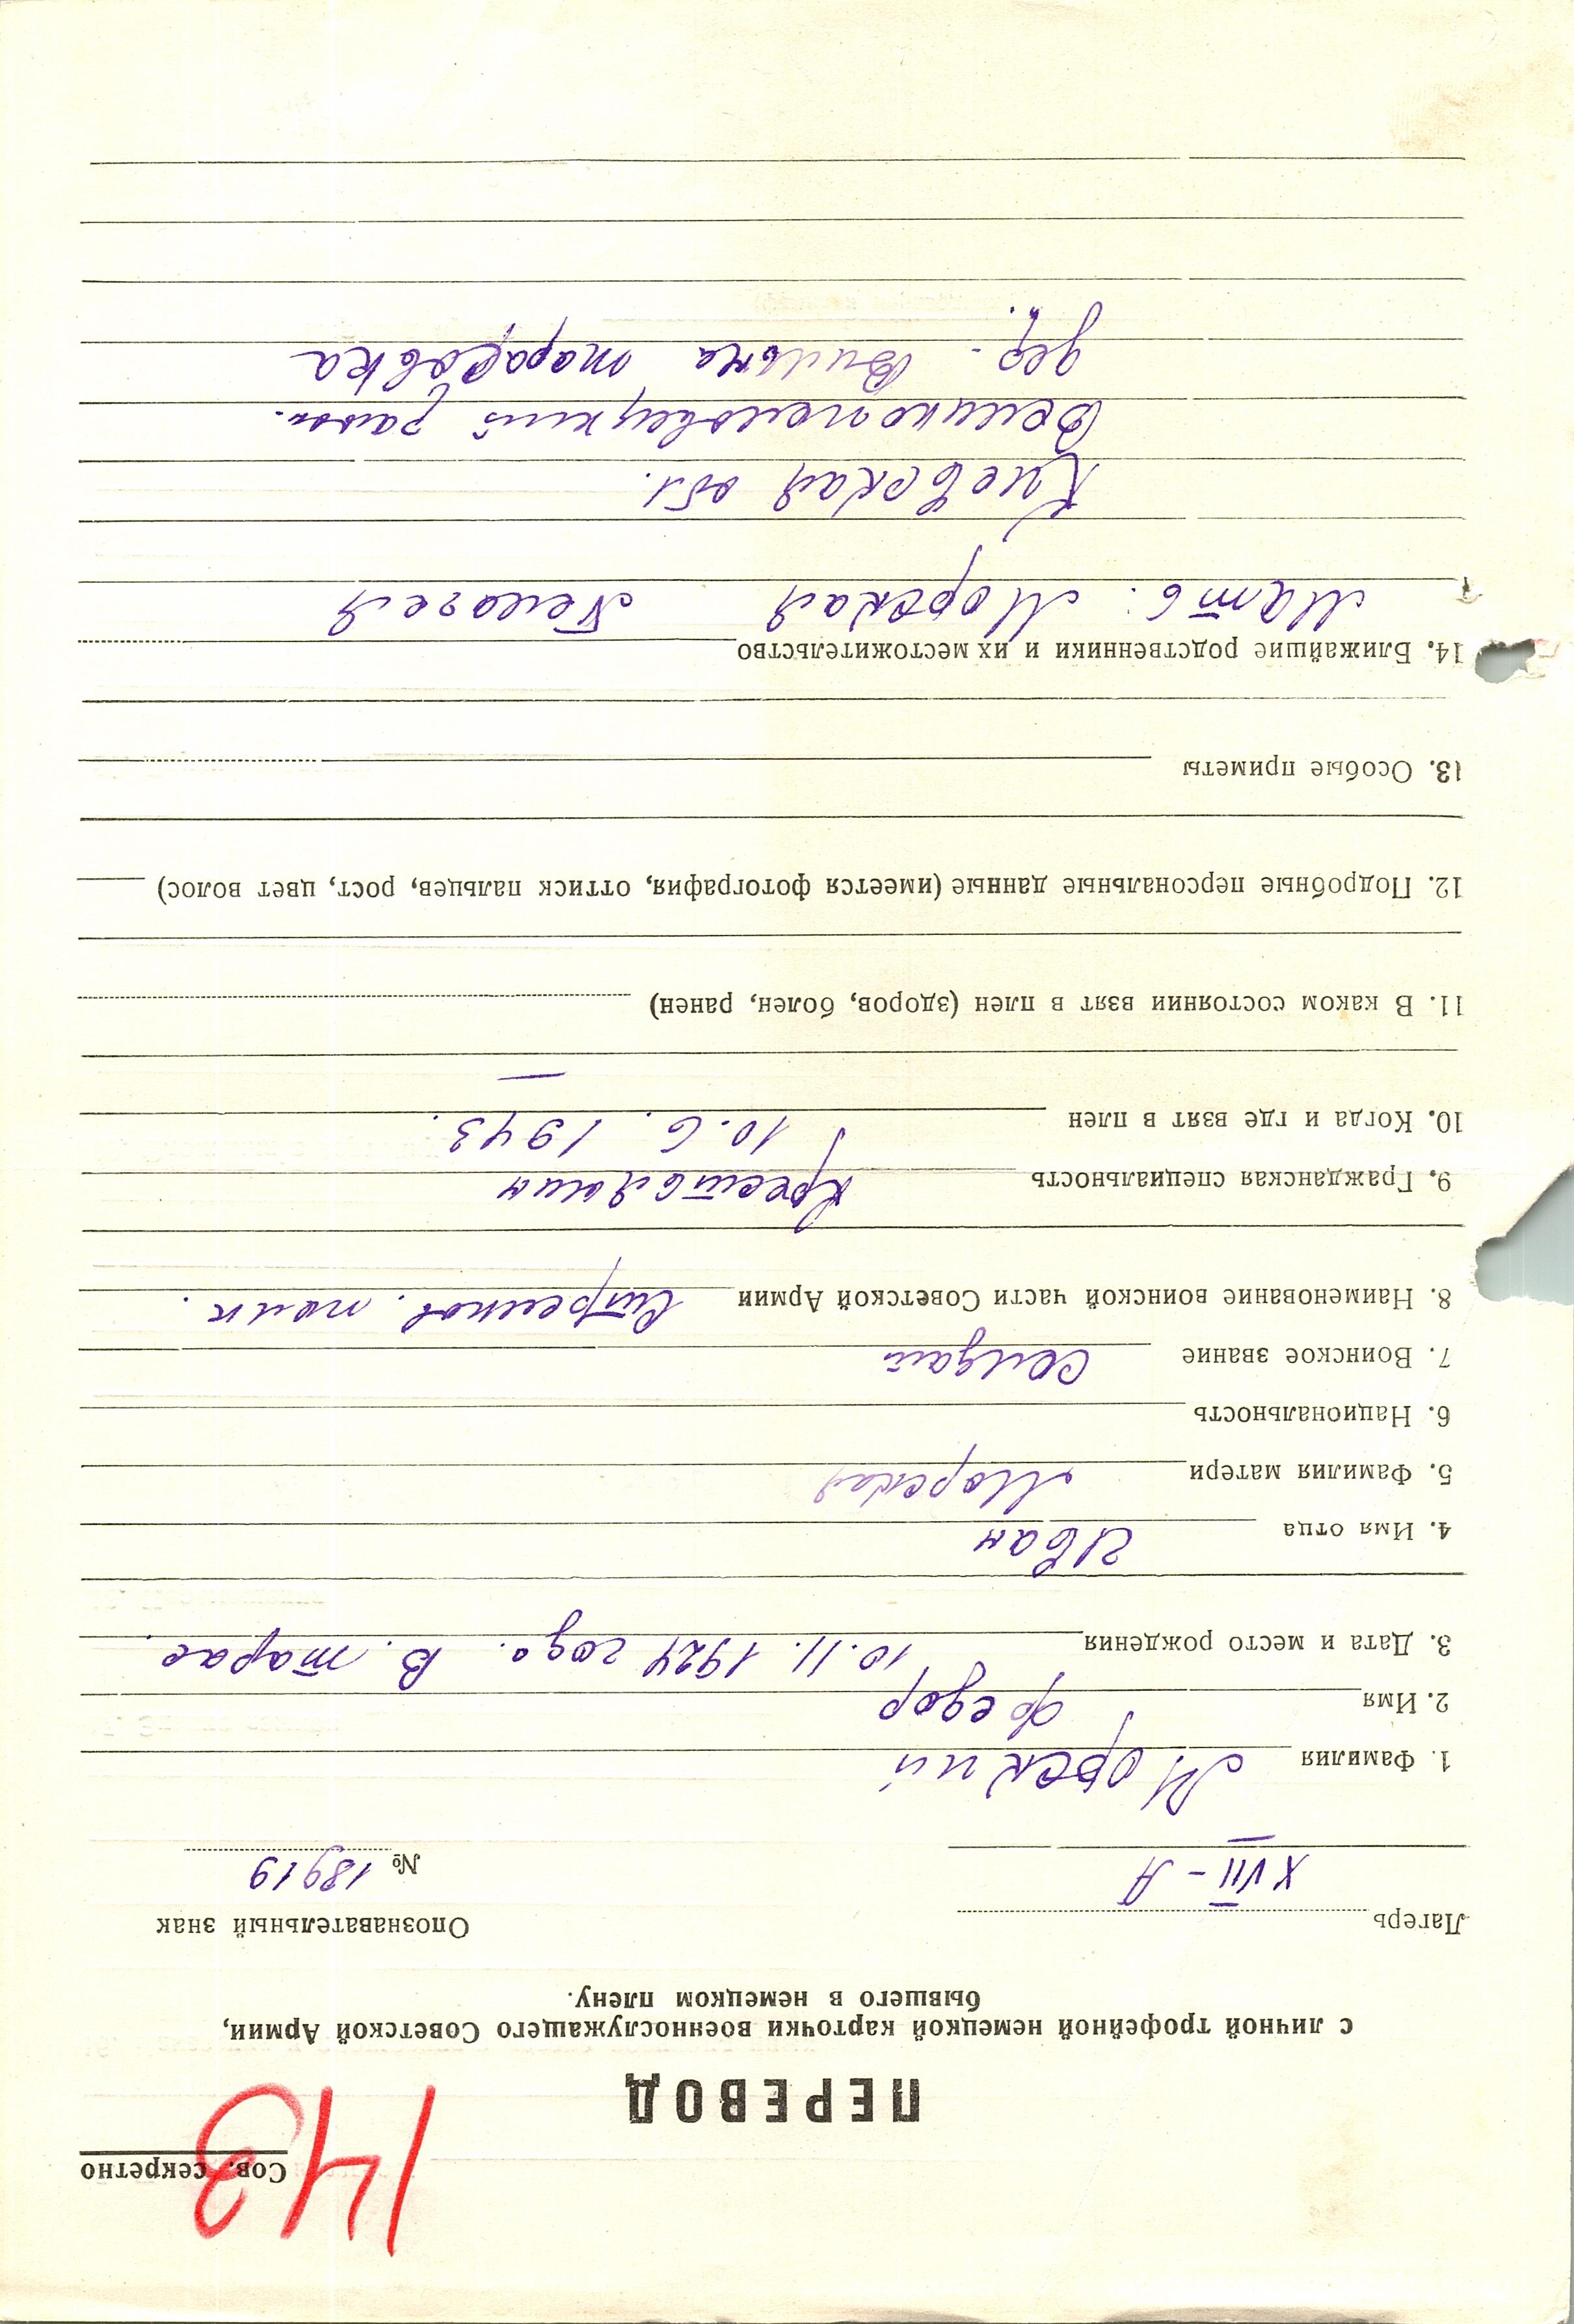 Сов. секретно
143
ПЕРЕВОД
с личной трофейной немецкой карточки военнослужащего Советской Армии,
бывшего в немецком плену.
Лагерь XVII-А Опознавательный знак
№ 18919
1. Фамилия Морский
2. Имя Федор
3. Дата и место рождения 10.11.1924 года. В. Тарас.
4. Имя отца Иван
5. Фамилия матери Морская
6. Национальность
7. Воинское звание Солдат
8. Наименование воинской части Советской Армии Стрелков. полк.
9. Гражданская специальность Крестьянин
10. Когда и где взят в плен 10.6.1943.
—
11. В каком состоянии взят в плен (здоров, болен, ранен)
12. Подробные персональные данные (имеется фотография, оттиск пальцев, рост, цвет волос)
13. Особые приметы
14. Ближайшие родственники и их местожительство
Мать: Морская Пелагея
Киевская обл.
район.
дер. Вильна